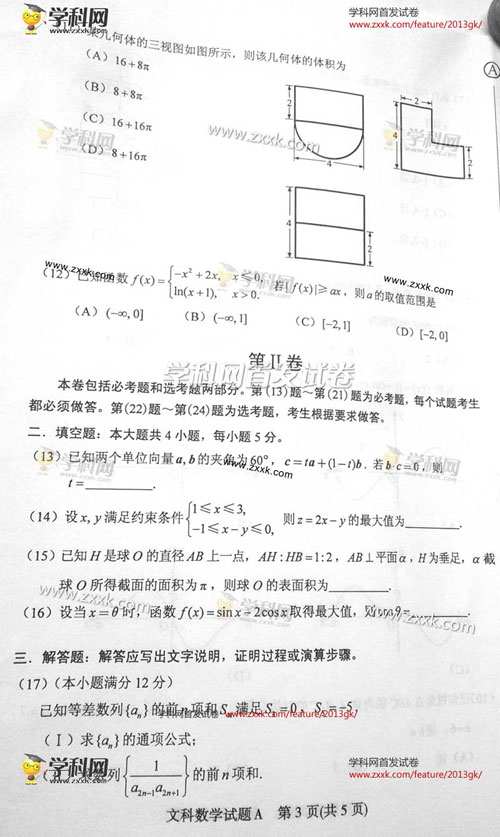 学科网 学科网首发试卷
www.zxxk.com/feature/2013gk/
某几何体的三视图如图所示，则该几何体的体积为
(A) 16+8π
(B) 8+8π
(C) 16+16π
(D) 8+16π
A
2
4
2
4
2
2
学科网 www.zxxk.com
(12) 已知函数 f(x)={-x²+2x, x≤0,
ln(x+1), x>0.
若|f(x)|≥ax，则a的取值范围是
www.zxxk.com 学科网 www.zxxk.com
(A) (-∞,0] (B) (-∞,1] (C) [-2,1] (D) [-2,0]
第Ⅱ卷
学科网首发试卷
本卷包括必考题和选考题两部分。第(13)题～第(21)题为必考题，每个试题考生
都必须做答。第(22)题～第(24)题为选考题，考生根据要求做答。
二．填空题：本大题共4小题，每小题5分。
(13) 已知两个单位向量a, b的夹角为60°，c=ta+(1-t)b．若b·c=0，则
t=________．
学科网 www.zxxk.com
(14) 设x, y满足约束条件{1≤x≤3,
-1≤x-y≤0,
则z=2x-y的最大值为________．
(15) 已知H是球O的直径AB上一点，AH:HB=1:2，AB⊥平面α，H为垂足，α截
球O所得截面的面积为π，则球O的表面积为________．
www.zxxk.com 学科网
(16) 设当x=θ时，函数f(x)=sin x-2cos x取得最大值，则cosθ=________．
www.zxxk.com
三．解答题：解答应写出文字说明，证明过程或演算步骤。
(17) (本小题满分12分)
已知等差数列{aₙ}的前n项和Sₙ满足S₃=0，S₅=-5．
学科网首发试卷 www.zxxk.com/feature/2013gk/
(Ⅰ) 求{aₙ}的通项公式；
(Ⅱ) 求数列{1/(a₂ₙ₋₁a₂ₙ₊₁)}的前n项和.
学科网 学科网首发试卷
www.zxxk.com/feature/2013gk/
文科数学试题A 第3页(共5页)